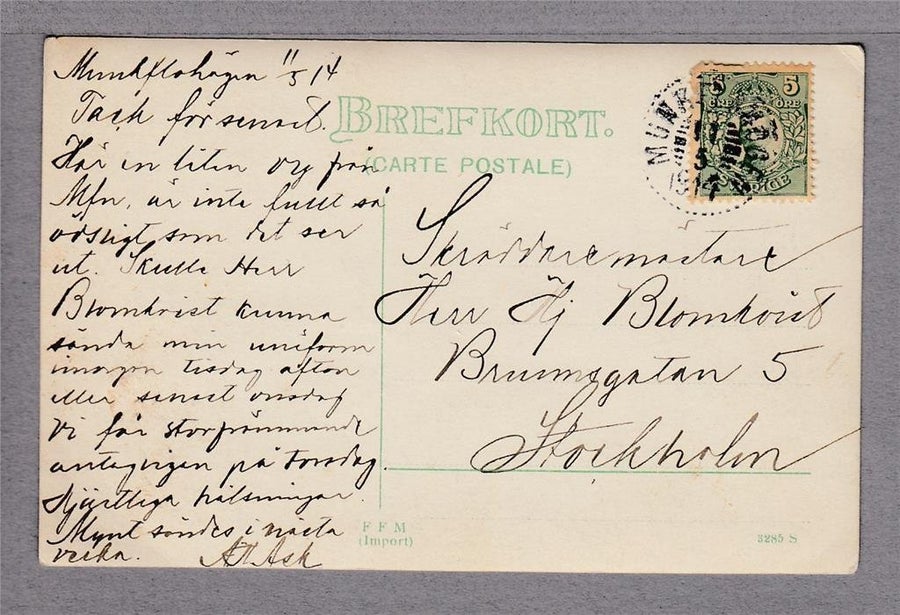 Munkflohögen 11/5 14
Tack för senast.
Här en liten vy från
Mfn, är inte fullt så
ödsligt som det ser
ut. Skulle Herr
Blomkvist kunna
sända min uniform
imorgon tisdag afton
eller senast onsdag
Vi får storfrämmande
antagligen på Torsdag.
Hjärtliga hälsningar.
Mynt sändes i nästa
vecka. Ask
BREFKORT.
(CARTE POSTALE)
5 5
ÖRE ÖRE
11
5
1914
Skräddaremästare
Herr Hj Blomkvist
Brunnsgatan 5
Stockholm
F F M
(Import)
3285 S